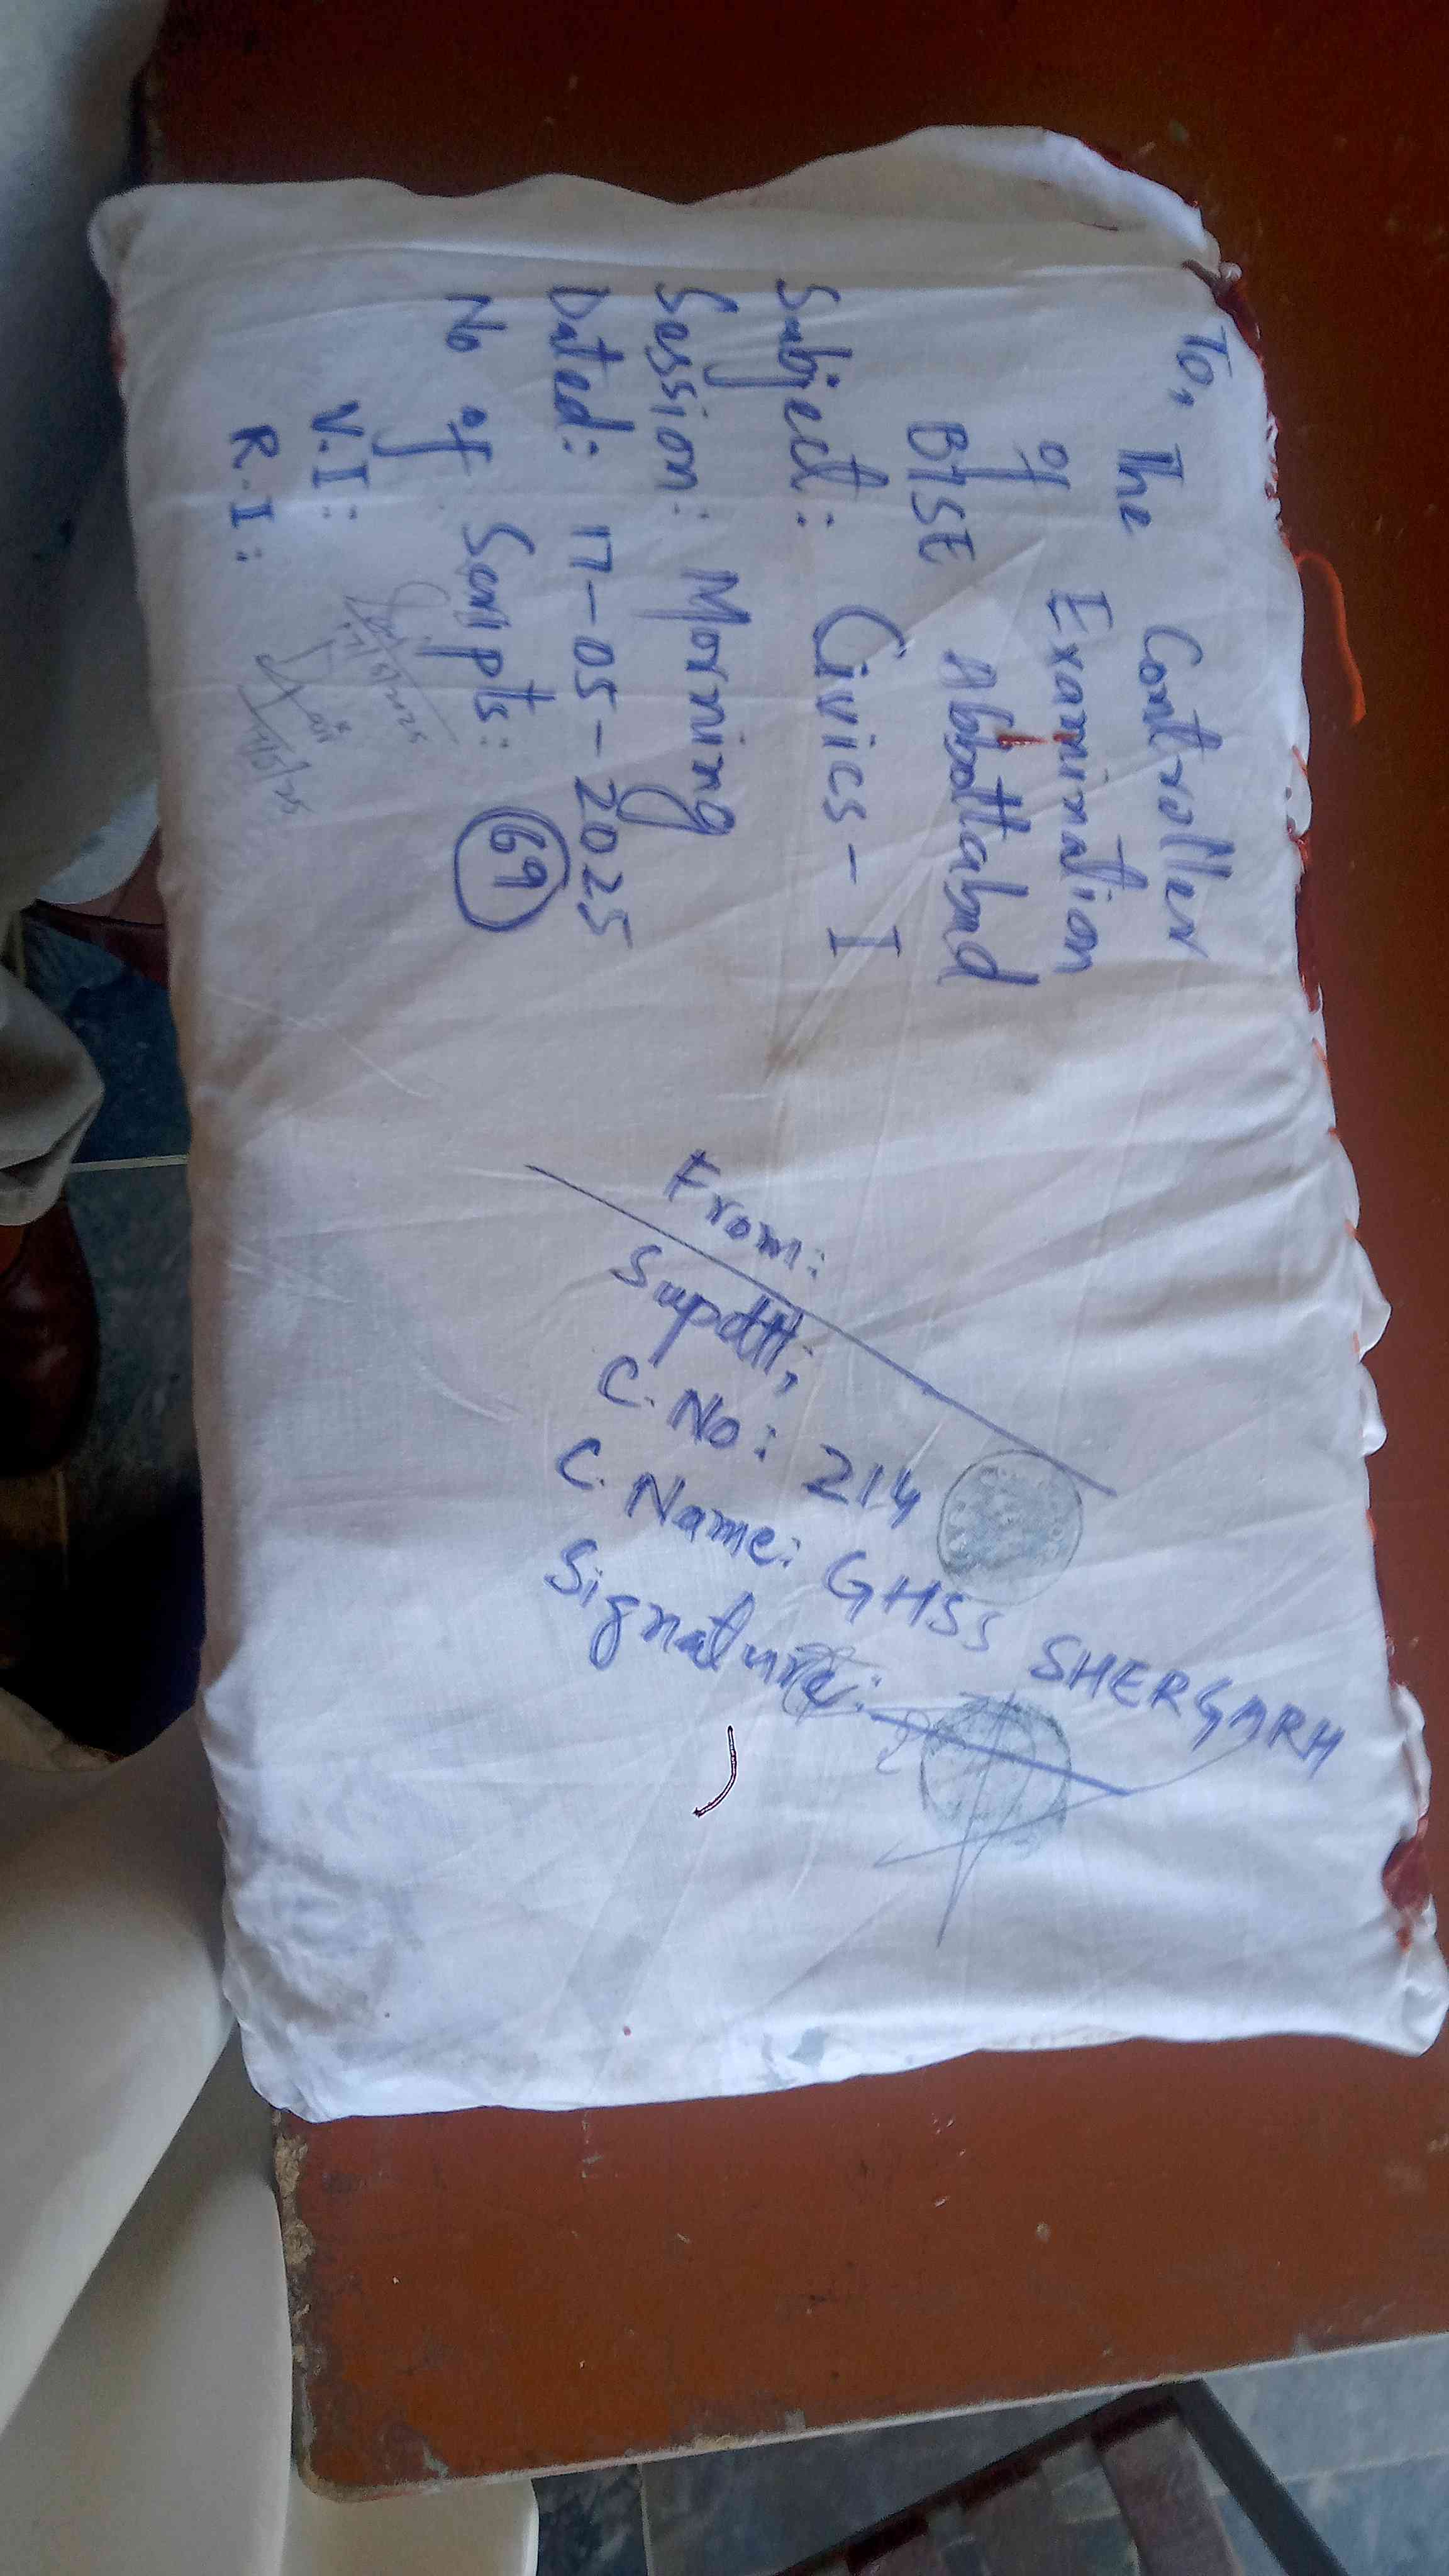 To, The Controller
of Examination
BISE Abbottabad
Subject: Civics - I
Session: Morning
Dated: 17-05-2025
No of Scripts: 69
V.I:
17/5/2025
R.I:
17/5/25
From:
Supdtt,
C. No: 214
C. Name: GHSS SHERGARH
Signature: